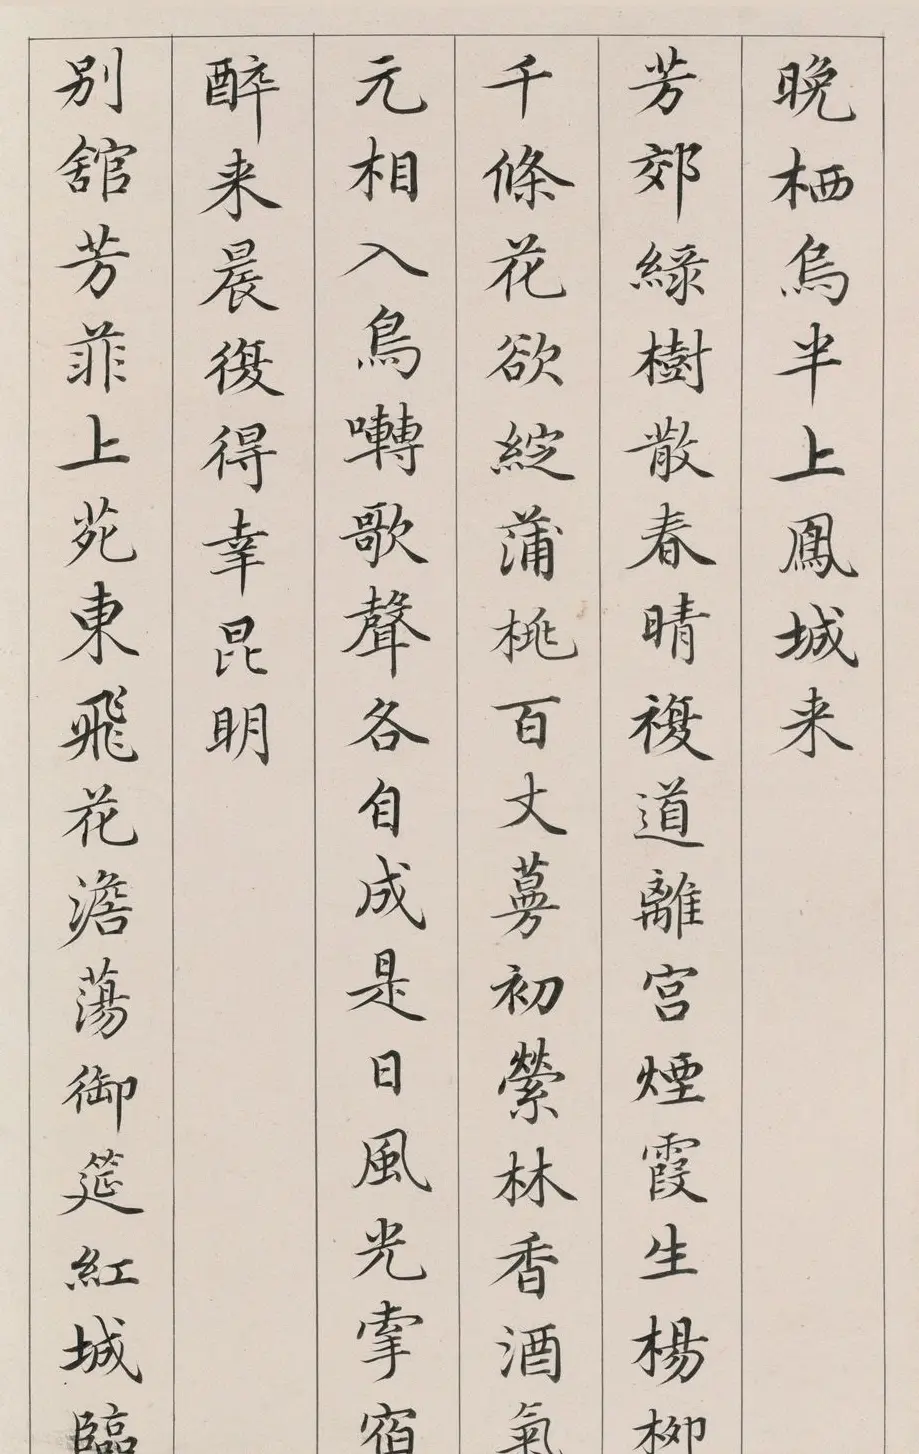 晚栖烏半上鳳城来
芳郊綠樹散春晴複道離宮煙霞生楊柳
千條花欲綻蒲桃百丈蔓初縈林香酒氣
元相入鳥囀歌聲各自成是日風光雩宿
醉来晨復得幸昆明
别舘芳菲上苑東飛花澹蕩御筵紅城臨